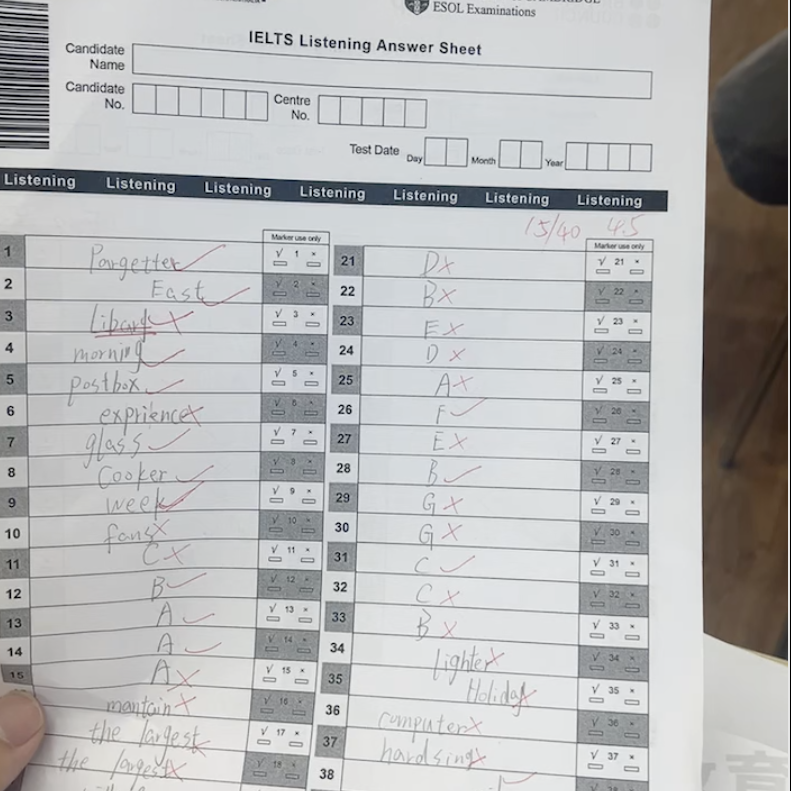 ESOL Examinations
IELTS Listening Answer Sheet
Candidate Name
Candidate No.
Centre No.
Test Date Day Month Year
Listening Listening Listening Listening Listening Listening Listening
15/40 4.5
Marker use only
Marker use only
1 Pargetter ✓ √ 1 ×
2 East ✓ √ 2 ×
3 Libary × √ 3 ×
4 morning ✓ √ 4 ×
5 postbox ✓ √ 5 ×
6 exprience × √ 6 ×
7 glass ✓ √ 7 ×
8 Cooker ✓ √ 8 ×
9 week ✓ √ 9 ×
10 fans × √ 10 ×
11 C × √ 11 ×
12 B ✓ √ 12 ×
13 A ✓ √ 13 ×
14 A ✓ √ 14 ×
15 A × √ 15 ×
mantain × √ 16 ×
the largest × √ 17 ×
the largest × √ 18 ×
21 D × √ 21 ×
22 B × √ 22 ×
23 E × √ 23 ×
24 D × √ 24 ×
25 A × √ 25 ×
26 F ✓ √ 26 ×
27 E × √ 27 ×
28 B ✓ √ 28 ×
29 G × √ 29 ×
30 G × √ 30 ×
31 C ✓ √ 31 ×
32 C × √ 32 ×
33 B × √ 33 ×
34 lighter × √ 34 ×
35 Holiday × √ 35 ×
36 computer × √ 36 ×
37 hardsing × √ 37 ×
38 ✓
育